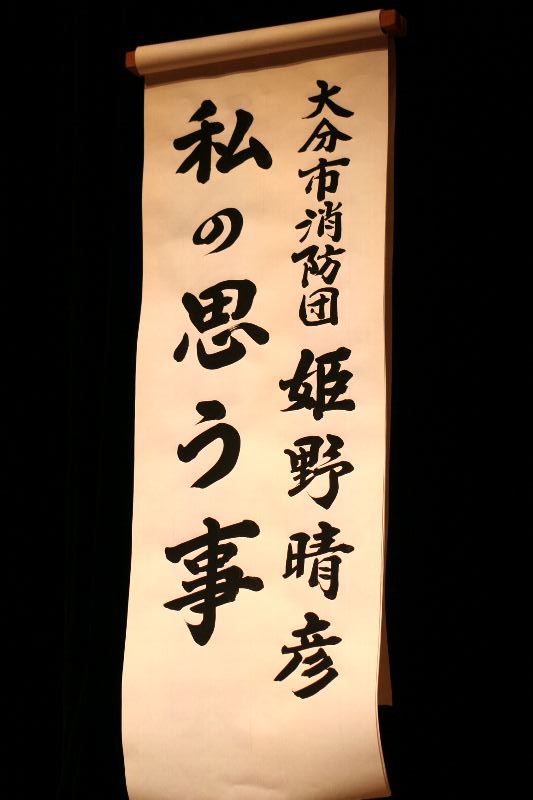 大分市消防団 姫野晴彦
私の思う事